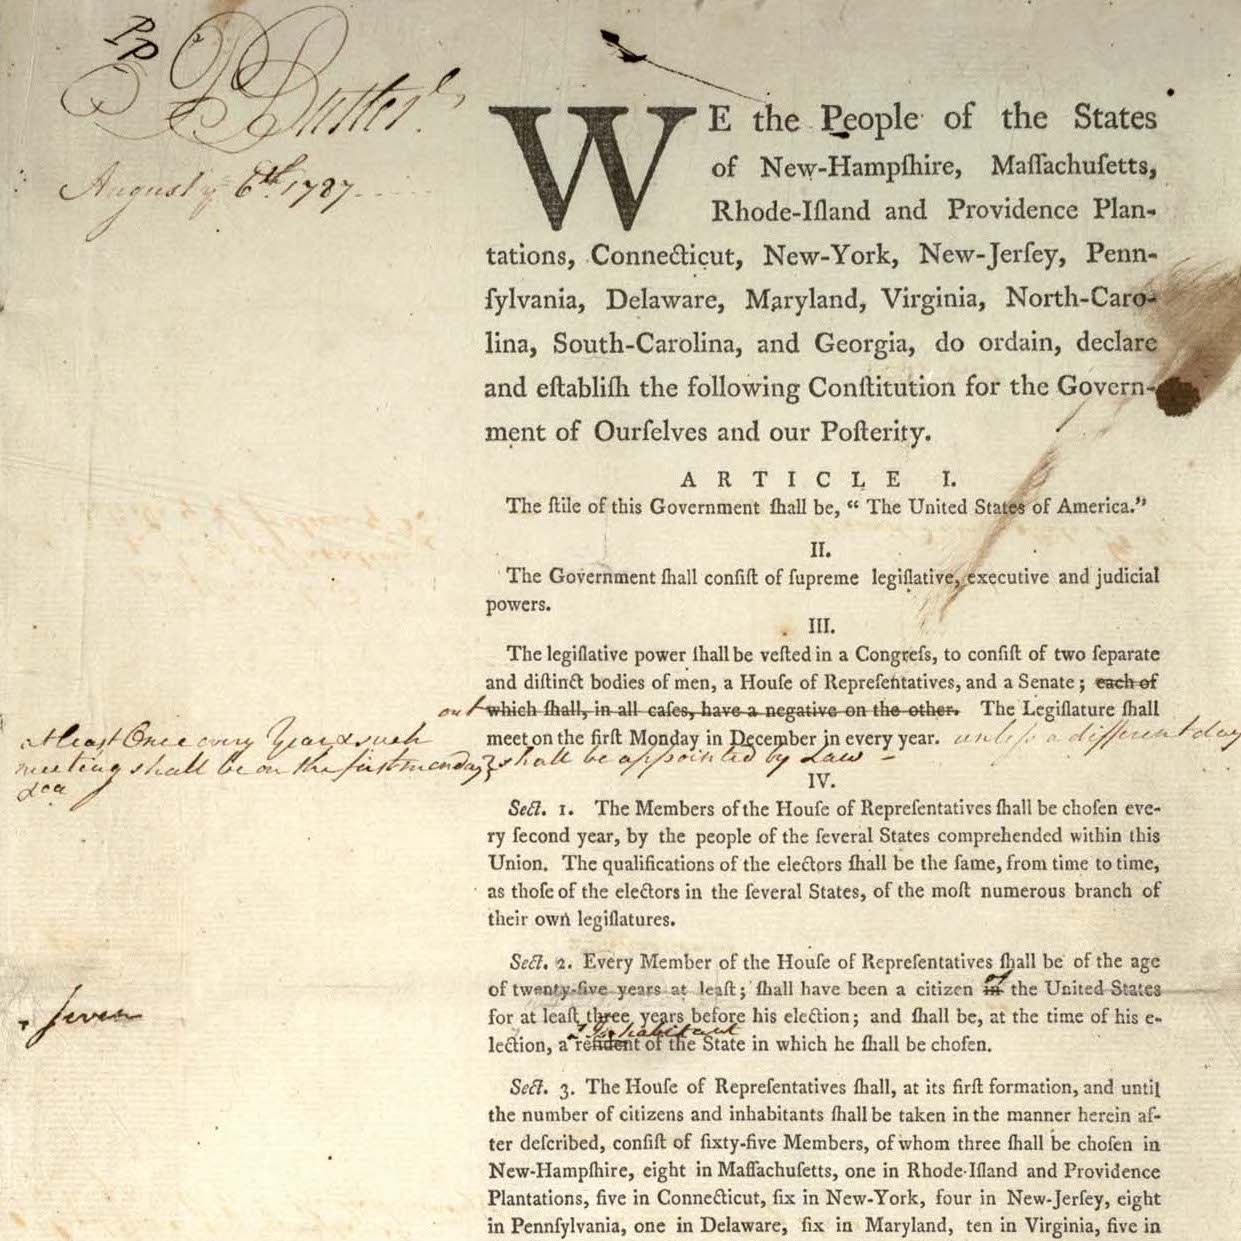 P P Butler
August ye 6th. 1787.
WE the People of the States
of New-Hampſhire, Maſſachuſetts,
Rhode-Iſland and Providence Plan-
tations, Connecticut, New-York, New-Jerſey, Penn-
ſylvania, Delaware, Maryland, Virginia, North-Caro-
lina, South-Carolina, and Georgia, do ordain, declare
and eſtabliſh the following Conſtitution for the Govern-
ment of Ourſelves and our Poſterity.
ARTICLE I.
The ſtile of this Government ſhall be, “ The United States of America.”
II.
The Government ſhall conſiſt of ſupreme legiſlative, executive and judicial
powers.
III.
The legiſlative power ſhall be veſted in a Congreſs, to conſiſt of two ſeparate
and diſtinct bodies of men, a Houſe of Repreſentatives, and a Senate ; each of
out which ſhall, in all caſes, have a negative on the other. The Legiſlature ſhall
meet on the firſt Monday in December in every year. unleſs a different day
shall be appointed by Law -
at least Once every Year & such
meeting shall be on the first monday
&ca
IV.
Sect. 1. The Members of the Houſe of Repreſentatives ſhall be choſen eve-
ry ſecond year, by the people of the ſeveral States comprehended within this
Union. The qualifications of the electors ſhall be the ſame, from time to time,
as thoſe of the electors in the ſeveral States, of the moſt numerous branch of
their own legiſlatures.
Sect. 2. Every Member of the Houſe of Repreſentatives ſhall be of the age
of
of twenty-five years at leaſt ; ſhall have been a citizen in the United States
seven
for at leaſt three years before his election ; and ſhall be, at the time of his e-
Inhabitant
lection, a reſident of the State in which he ſhall be choſen.
Sect. 3. The Houſe of Repreſentatives ſhall, at its firſt formation, and until
the number of citizens and inhabitants ſhall be taken in the manner herein af-
ter deſcribed, conſiſt of ſixty-five Members, of whom three ſhall be choſen in
New-Hampſhire, eight in Maſſachuſetts, one in Rhode-Iſland and Providence
Plantations, five in Connecticut, ſix in New-York, four in New-Jerſey, eight
in Pennſylvania, one in Delaware, ſix in Maryland, ten in Virginia, five in